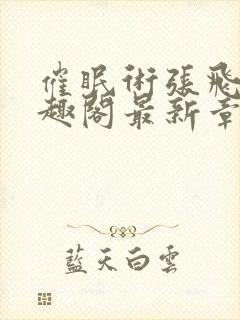 催眠術張飛
趣閣最新章
藍天白雲